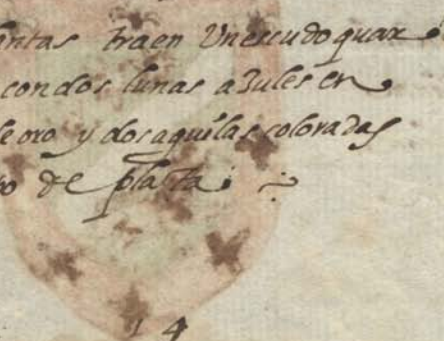 intas traen Un escudo quar
con dos lunas azules en
de oro y dos aguilas coloradas
o de plata
14